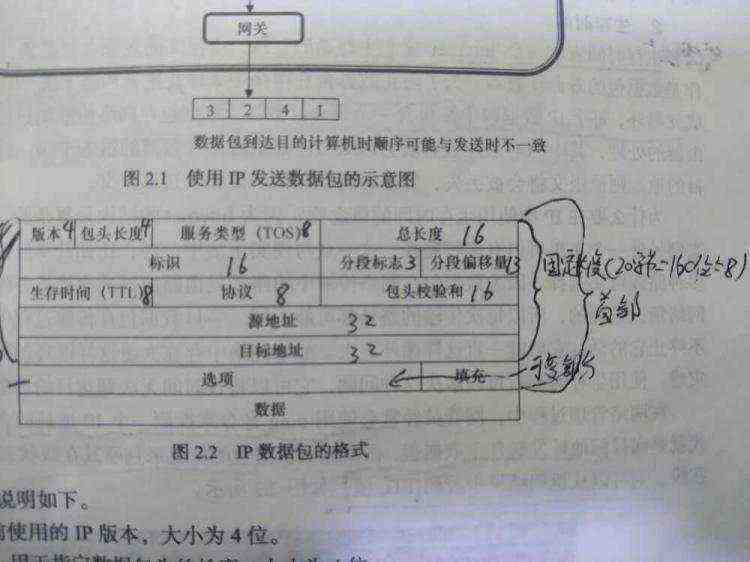 网关
3 2 4 1
数据包到达目的计算机时顺序可能与发送时不一致
图 2.1 使用 IP 发送数据包的示意图
版本4 包头长度4 服务类型（TOS）8 总长度 16
标识 16 分段标志3 分段偏移量13
固定长度(20字节=160位÷8)
生存时间（TTL）8 协议 8 包头校验和 16
首部
源地址 32
目标地址 32
选项 填充
可变部分
数据
图 2.2 IP 数据包的格式
说明如下。
前使用的 IP 版本，大小为 4 位。